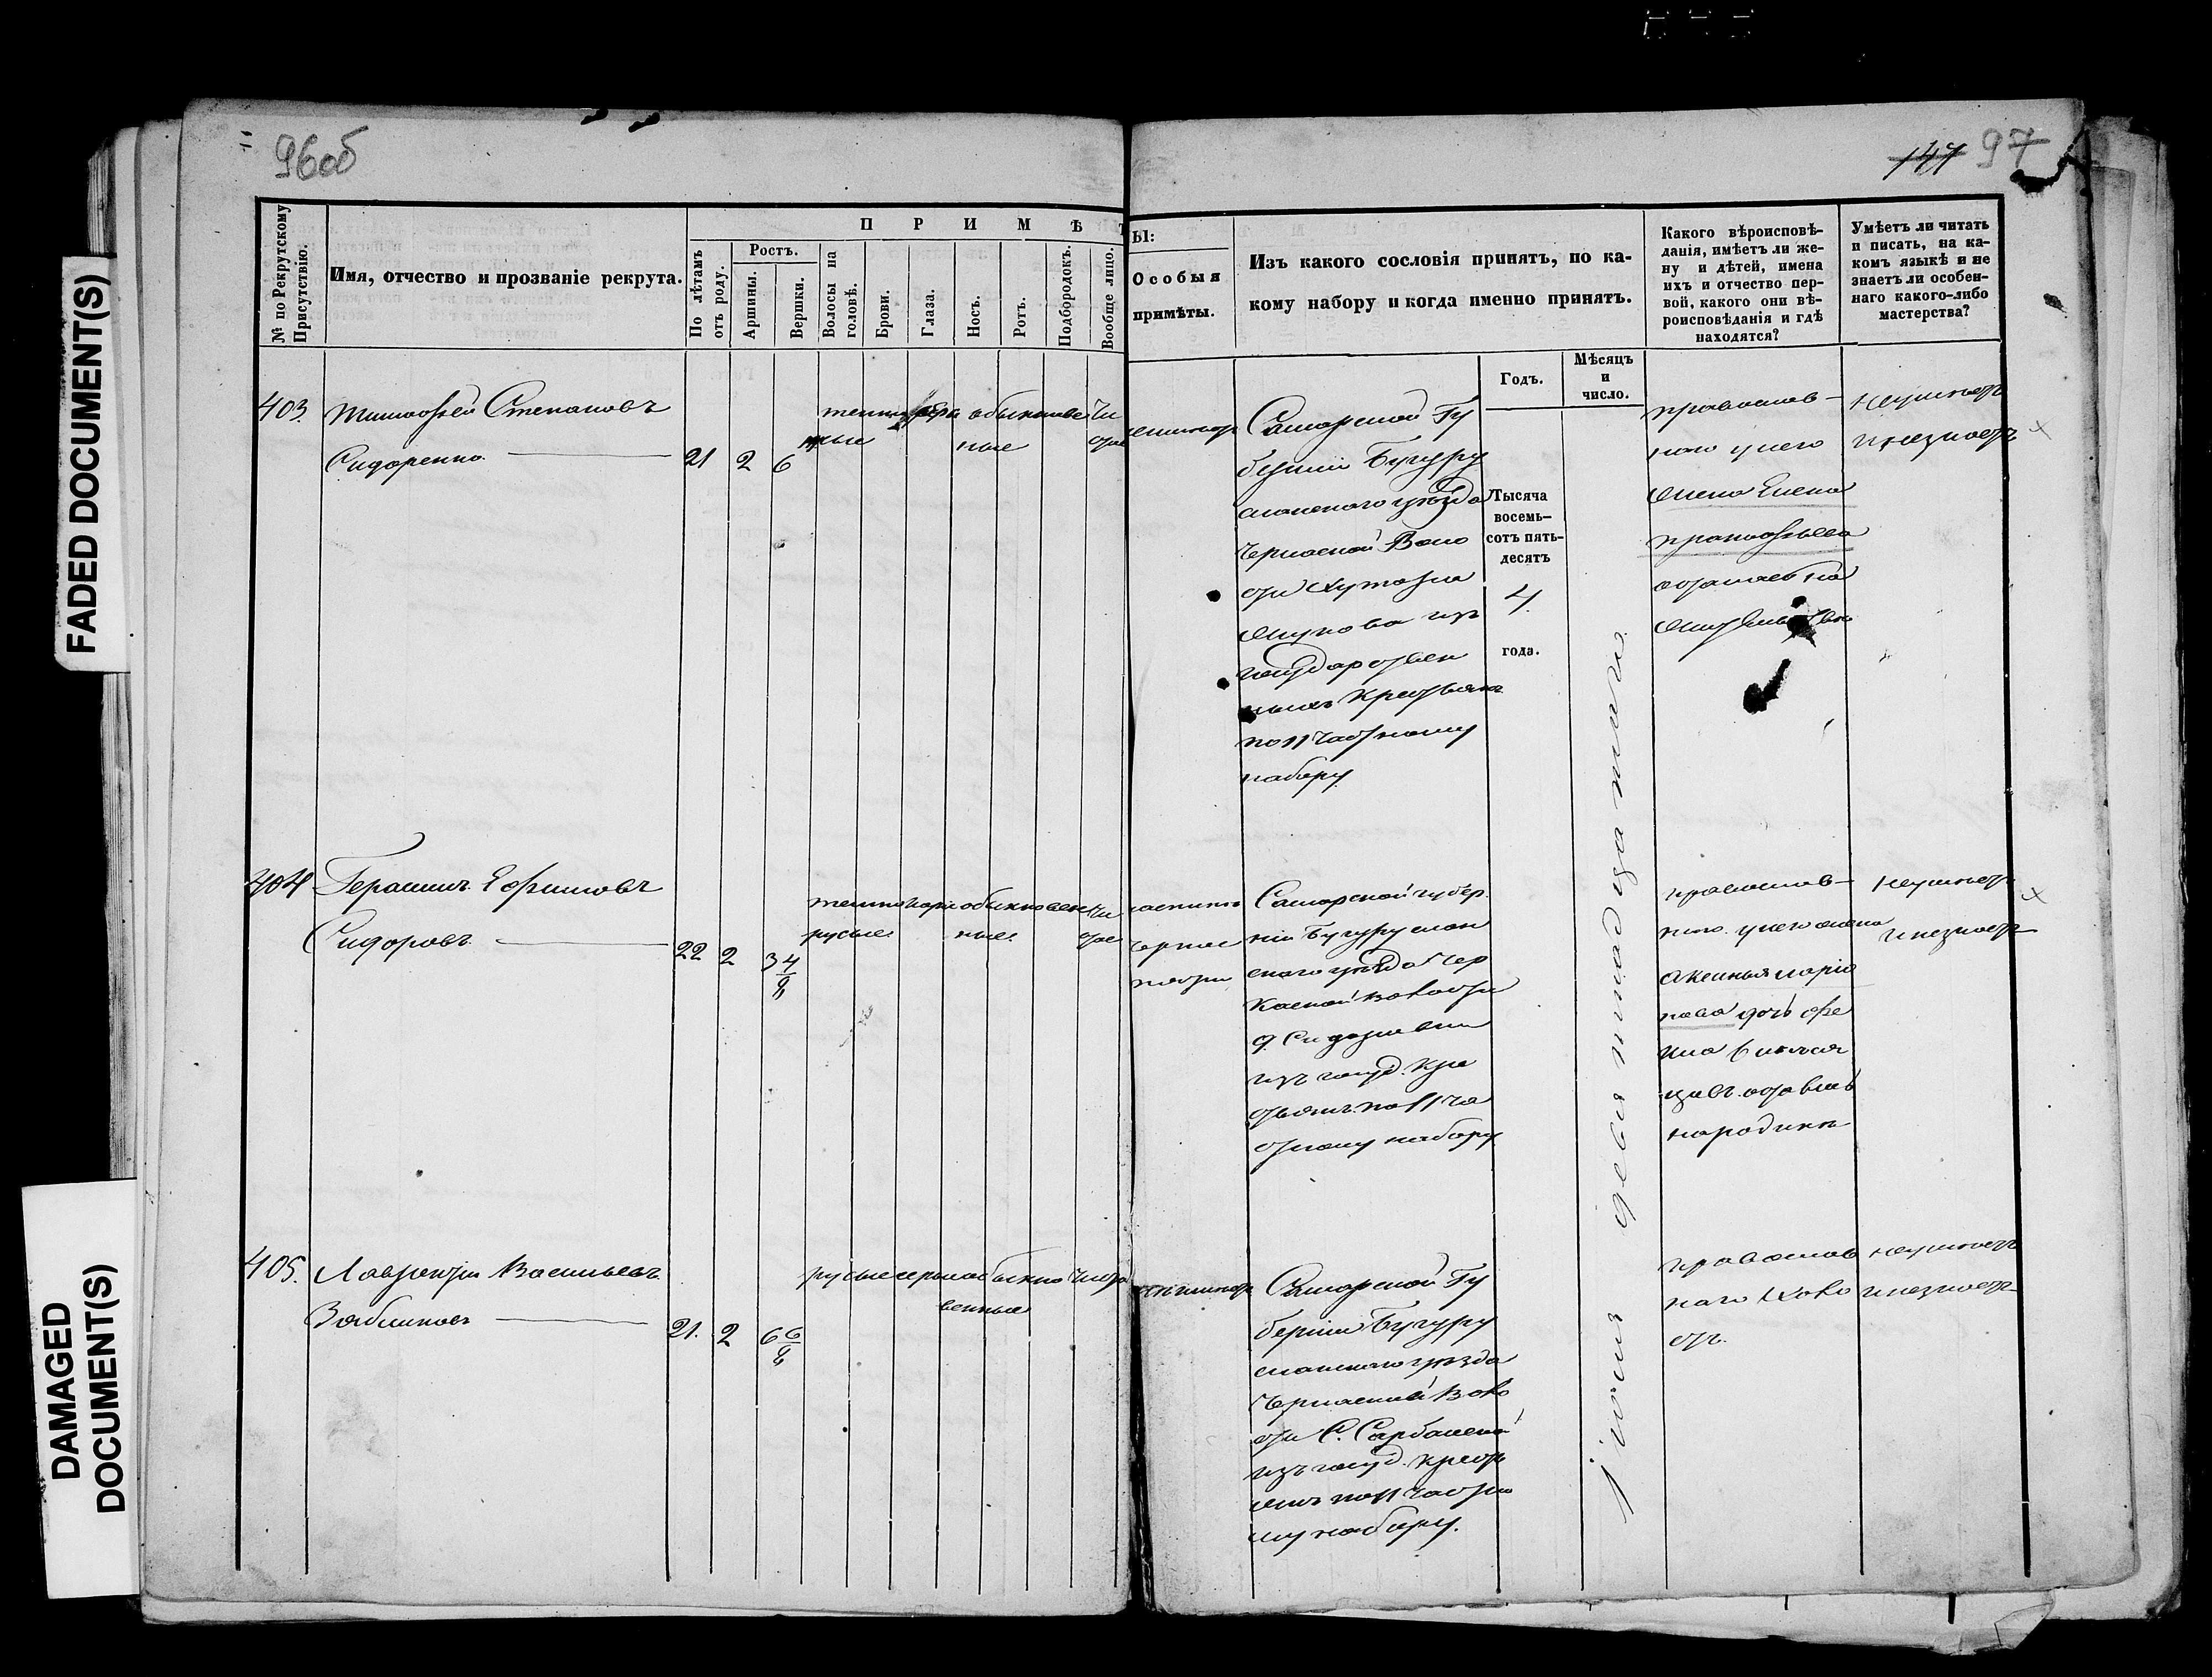 FADED DOCUMENT(S)
DAMAGED
DOCUMENT(S)
96об
147 97
№ по Рекрутскому
Присутствію.
Имя, отчество и прозваніе рекрута.
П Р И М Ѣ Т
По лѣтамъ
отъ роду.
Ростъ.
Аршины.
Вершки.
Волосы на
головѣ.
Брови.
Глаза.
Носъ.
Ротъ.
Подбородокъ.
Вообще лицо.
Ы:
Особыя
примѣты.
Изъ какого сословія принятъ, по ка-
кому набору и когда именно принятъ.
Годъ.
Мѣсяцъ
и
число.
Какого вѣроисповѣ-
данія, имѣетъ ли же-
ну и дѣтей, имена
ихъ и отчество пер-
вой, какого они вѣ-
роисповѣданія и гдѣ
находятся?
Умѣетъ ли читать
и писать, на ка-
комъ языкѣ и не
знаетъ ли особен-
наго какого-либо
мастерства?
403. Тимофей Степановъ
Сидоренко
21 2 6
темно
обыкновен
ные
чи
стое
неимѣетъ
Самарской Гу
берніи Бугуру
сланскаго уѣзда
Черкаской Воло
сти Хутора
изъ
государствен
ныхъ Крестьянъ
по 11 частному
набору
Тысяча
восемь-
сотъ пять-
десятъ
4.
года.
православ-
наго у него
жена Елена
прокофьева
неумѣетъ
и незнаетъ
404 Герасимъ Ефимовъ
Сидоровъ
22 2 3 4/8
темно
русые
каріе
обыкновен
ные
чи
стое
Самарской губер
ніи Бугуруслан
скаго уѣзда Чер
каской волости
изъ госуд. кре
стьянъ по 11 ча
стному набору
православ-
наго у него жена
Аксинья
дочь
на родинѣ
неумѣетъ
и незнаетъ
405. Лаврентій Васильевъ
21. 2 6 6/8
русые
серые
обыкно
венные
чисто
неимѣетъ
Самарской Гу
берніи Бугуру
сланскаго уѣзда
Черкаской Воло
сти С. Сарбайской
изъ госуд. крестъ
янъ по 11 частно
му набору.
православ
наго холо
стъ.
неумѣетъ
и незнаетъ
іюня девятнадцатаго